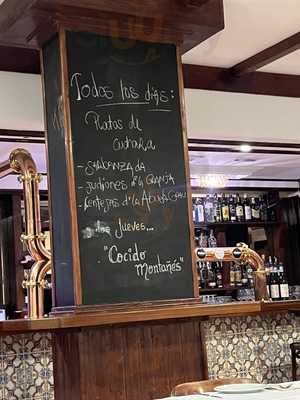 Todos los días:
Platos de
cuchara
- Judiones d'la GRANJA
- Lentejas d'la Abuela
los Jueves...
"Cocido
Montañés"